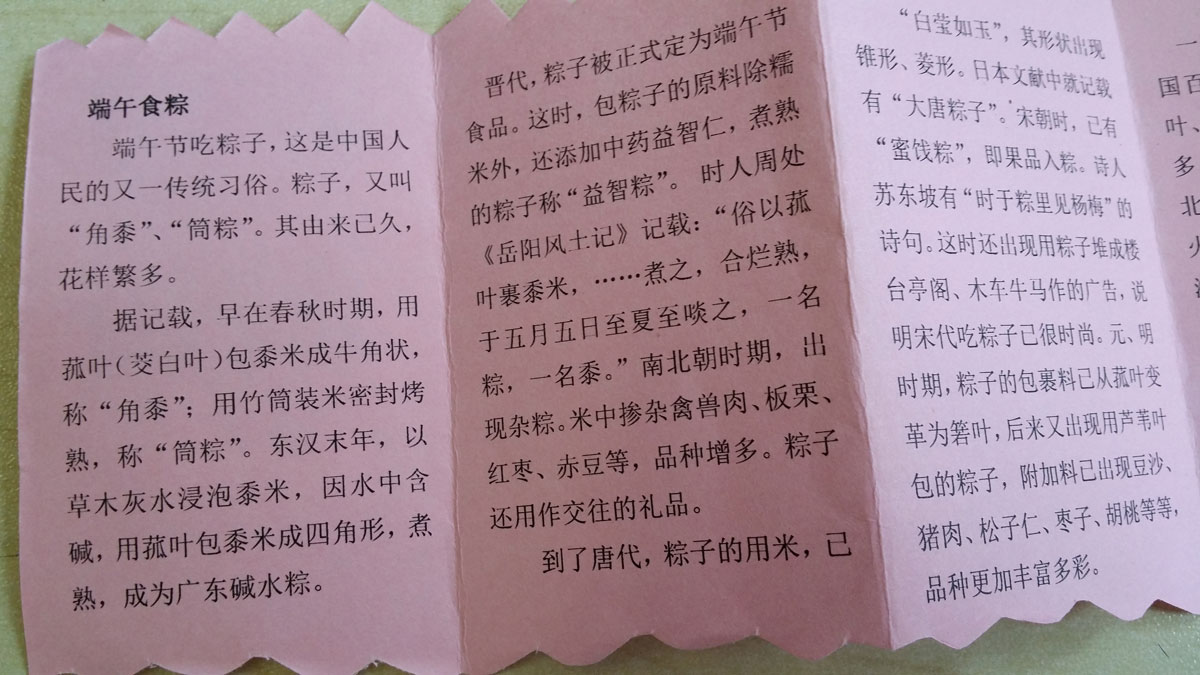 端午食粽
端午节吃粽子，这是中国人
民的又一传统习俗。粽子，又叫
“角黍”、“筒粽”。其由来已久，
花样繁多。
据记载，早在春秋时期，用
菰叶（茭白叶）包黍米成牛角状，
称“角黍”；用竹筒装米密封烤
熟，称“筒粽”。东汉末年，以
草木灰水浸泡黍米，因水中含
碱，用菰叶包黍米成四角形，煮
熟，成为广东碱水粽。
晋代，粽子被正式定为端午节
食品。这时，包粽子的原料除糯
米外，还添加中药益智仁，煮熟
的粽子称“益智粽”。时人周处
《岳阳风土记》记载：“俗以菰
叶裹黍米，……煮之，合烂熟，
于五月五日至夏至啖之，一名
粽，一名黍。”南北朝时期，出
现杂粽。米中掺杂禽兽肉、板栗、
红枣、赤豆等，品种增多。粽子
还用作交往的礼品。
到了唐代，粽子的用米，已
“白莹如玉”，其形状出现
锥形、菱形。日本文献中就记载
有“大唐粽子”。宋朝时，已有
“蜜饯粽”，即果品入粽。诗人
苏东坡有“时于粽里见杨梅”的
诗句。这时还出现用粽子堆成楼
台亭阁、木车牛马作的广告，说
明宋代吃粽子已很时尚。元、明
时期，粽子的包裹料已从菰叶变
革为箬叶，后来又出现用芦苇叶
包的粽子，附加料已出现豆沙、
猪肉、松子仁、枣子、胡桃等等，
品种更加丰富多彩。
一
国百
叶、
多
北
火